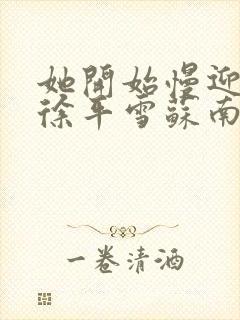 她開始慢迎
徐平雪蘇南
一卷清酒